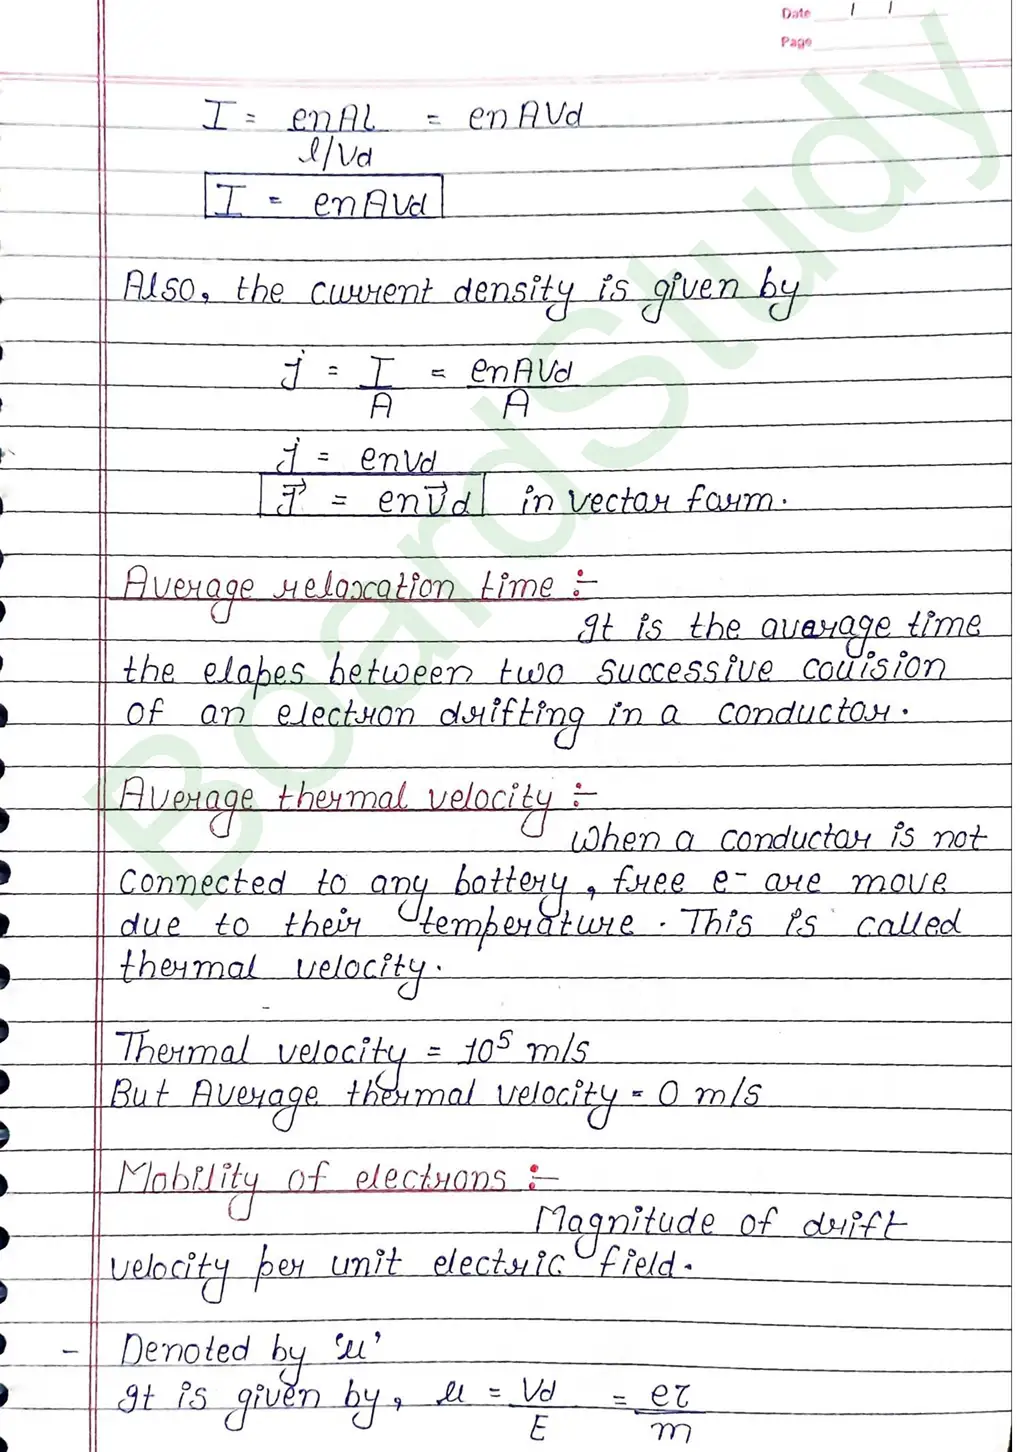 Date / /
Page
I = enAl = enAVd
l/Vd
I = enAVd
Also, the current density is given by
j = I = enAVd
A A
j = envd
J⃗ = env⃗d in vector form.
Average relaxation time :-
It is the average time
the elapes between two successive collision
of an electron drifting in a conductor.
Average thermal velocity :-
When a conductor is not
connected to any battery, free e⁻ are move
due to their temperature. This is called
thermal velocity.
Thermal velocity = 10⁵ m/s
But Average thermal velocity = 0 m/s
Mobility of electrons :-
Magnitude of drift
velocity per unit electric field.
- Denoted by 'μ'
It is given by, μ = Vd = eτ
E m
BoardStudy